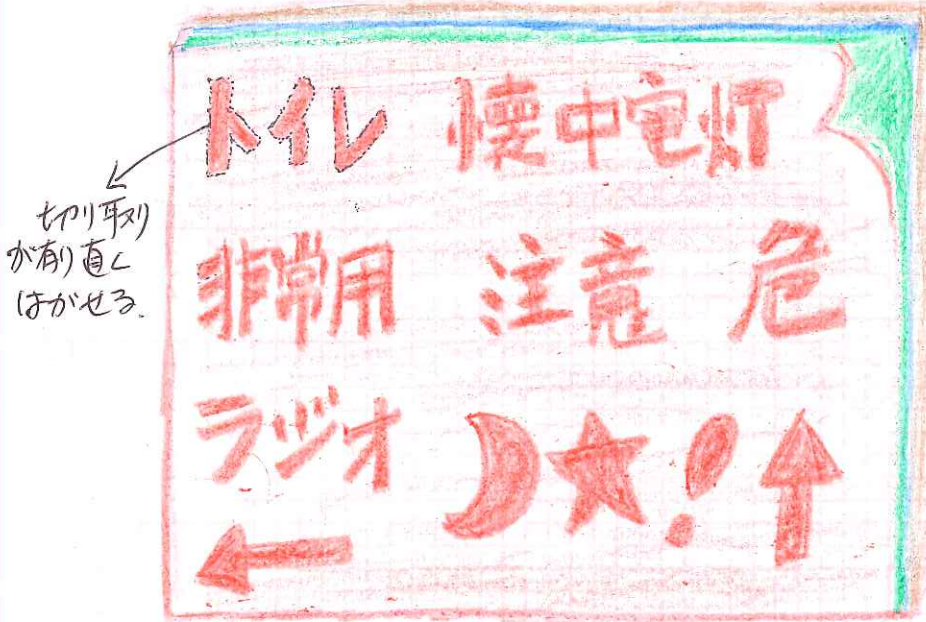 トイレ 懐中電灯
切り取り
が有り直ぐ
はがせる.
非常用 注意 危
ラジオ
!